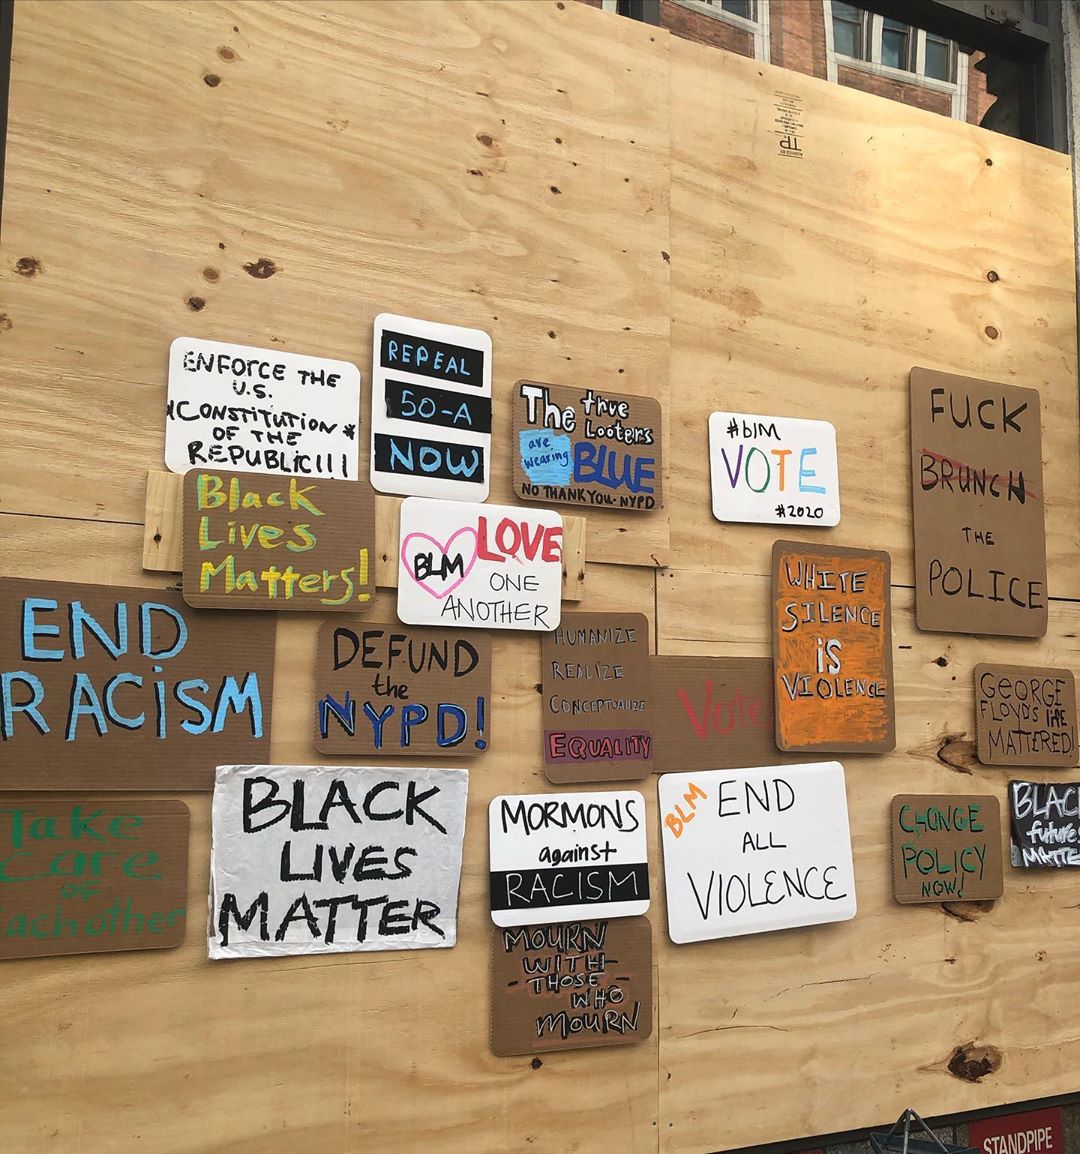 ENFORCE THE
U.S.
CONSTITUTION *
OF THE
REPUBLIC!!!
REPEAL
50-A
NOW
The true
Looters
are
wearing
BLUE
NO THANK YOU - NYPD
#blM
VOTE
#2020
FUCK
BRUNCH
THE
POLICE
Black
Lives
Matters!
BLM LOVE
ONE
ANOTHER
WHITE
SILENCE
iS
VIOLENCE
END
RACISM
DEFUND
the
NYPD!
HUMANIZE
REALIZE
CONCEPTUALIZE
EQUALITY
Vote
GEORGE
FLOYD'S lIFE
MATTERED!
Take
care
of
each other
BLACK
LIVES
MATTER
MORMONS
against
RACISM
BLM
END
ALL
VIOLENCE
CHANGE
POLICY
NOW!
BLACK
future
MATTE
MOURN
WITH
THOSE
WHO
MOURN
TP
STANDPIPE